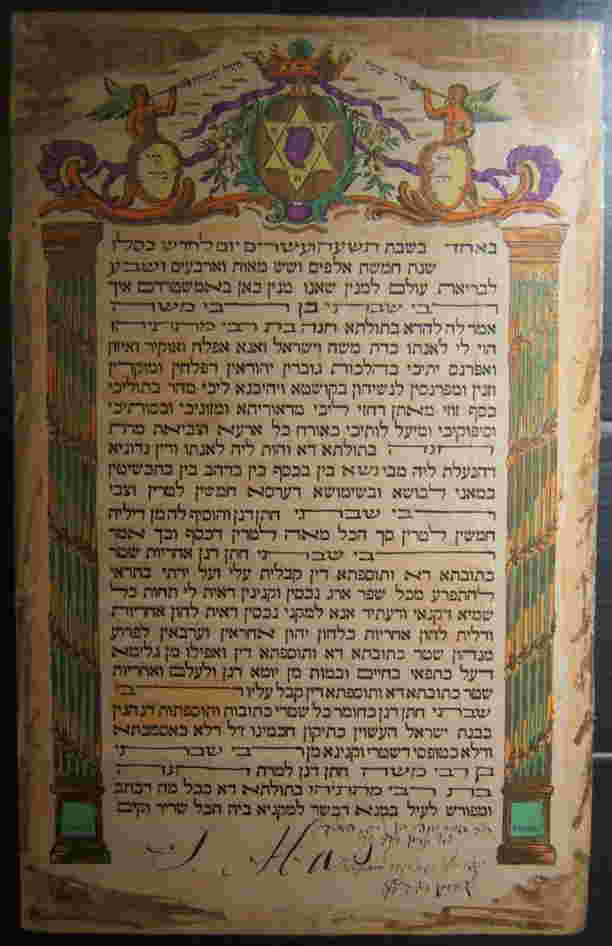 באחד בשבת תשעה ועשרים יום לחדש כסלו
שנת חמשת אלפים ושש מאות וארבעים ושבע
לבריאת עולם למנין שאנו מנין כאן באמשטרדם איך
רבי שבתי בן רבי משה
אמר לה להדא בתולתא חנה בת רבי מתתיהו
הוי לי לאנתו כדת משה וישראל ואנא אפלח ואוקיר ואיזון
ואפרנס יתיכי כהלכות גוברין יהודאין דפלחין ומוקרין
וזנין ומפרנסין לנשיהון בקושטא ויהיבנא ליכי מהר בתוליכי
כסף זוזי מאתן דחזי ליכי מדאוריתא ומזוניכי וכסותיכי
וסיפוקיכי ומיעל לותיכי כאורח כל ארעא וצביאת מרת
חנה בתולתא דא והות ליה לאנתו ודין נדוניא
דהנעלת ליה מבי נשא בין בכסף בין בדהב בין בתכשיטין
במאני דלבושא ובשימושא דערסא חמשין לטרין וצבי
רבי שבתי חתן דנן והוסיף לה מן דיליה
חמשין לטרין סך הכל מאה לטרין דכסף וכך אמר
רבי שבתי חתן דנן אחריות שטר
כתובתא דא ותוספתא דין קבלית עלי ועל ירתי בתראי
להתפרע מכל שפר ארג נכסין וקנינין דאית לי תחות כל
שמיא דקנאי ודעתיד אנא למקני נכסין דאית להון אחריות
ודלית להון אחריות כלהון יהון אחראין וערבאין לפרוע
מנהון שטר כתובתא דא ותוספתא דין ואפילו מן גלימא
דעל כתפאי בחיים ובמות מן יומא דנן ולעלם ואחריות
שטר כתובתא דא ותוספתא דין קבל עליו רבי
שבתי חתן דנן כחומר כל שטרי כתובות ותוספתות דנהגין
בבנת ישראל העשוין כתיקון חכמינו זל דלא כאסמכתא
ודלא כטופסי דשטרי וקנינא מן רבי שבתי
בן רבי משה חתן דנן למרת חנה
בת רבי מתתיהו בתולתא דא ככל מה דכתב
ומפורש לעיל במנא דכשר למקניא ביה הכל שריר וקים